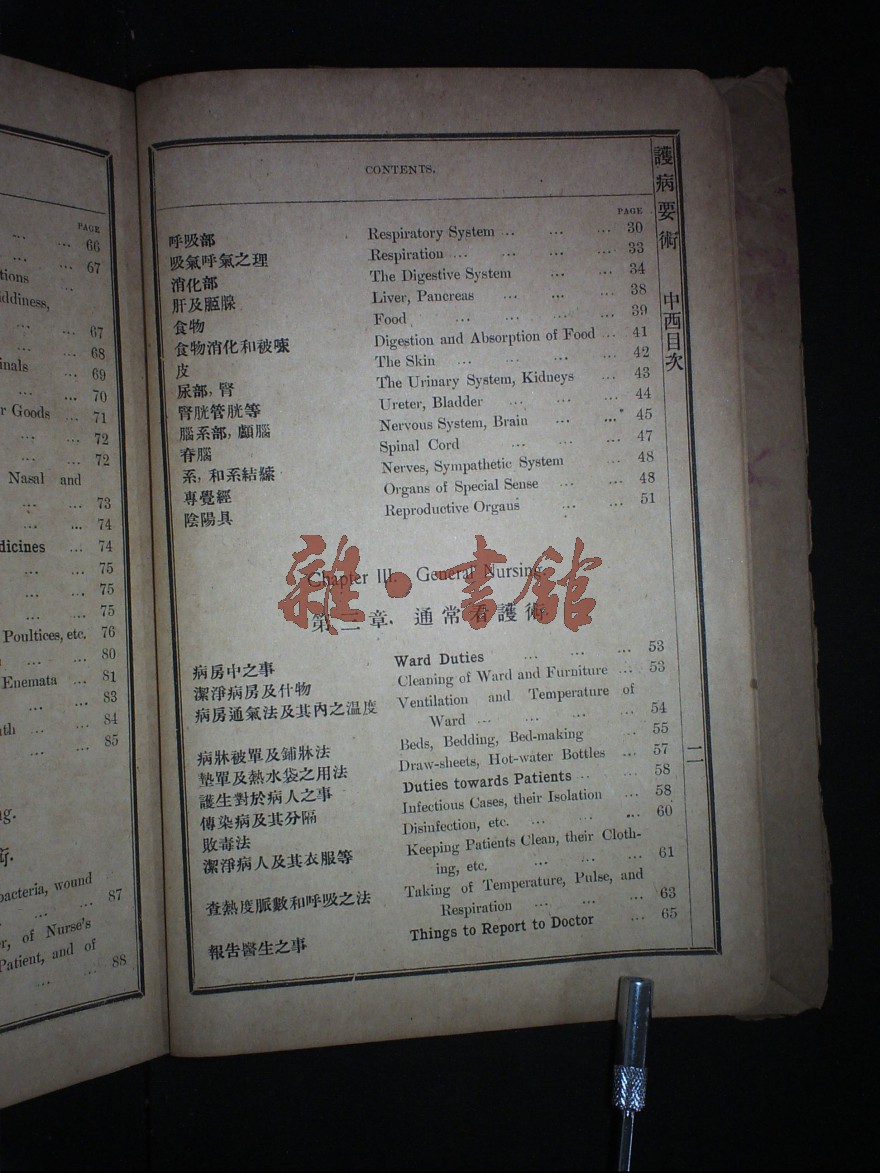 PAGE
... ... 66
... ... 67
tions
iddiness,
... ... 67
... ... 68
inals
... ... 69
... ... 70
r Goods ... 71
... ... 72
... ... 72
Nasal and
... ... 73
... ... 74
dicines ... 74
... ... 75
... ... 75
... ... 75
Poultices, etc. 76
... ... 80
Enemata ... 81
... ... 83
ath ... ... 84
... ... 85
ng.
術.
bacteria, wound
... ... 87
er, of Nurse's
Patient, and of
... ... 88
CONTENTS.
PAGE
呼吸部 Respiratory System ... ... ... 30
吸氣呼氣之理 Respiration ... ... ... ... 33
消化部 The Digestive System ... ... 34
肝及胵腺 Liver, Pancreas ... ... ... 38
食物 Food ... ... ... ... 39
食物消化和被嗍 Digestion and Absorption of Food ... 41
皮 The Skin ... ... ... ... 42
尿部, 腎 The Urinary System, Kidneys ... 43
腎胱管胱等 Ureter, Bladder ... ... ... 44
腦系部, 顱腦 Nervous System, Brain ... ... 45
脊腦 Spinal Cord ... ... ... 47
系, 和系結 Nerves, Sympathetic System ... 48
專覺經 Organs of Special Sense ... ... 48
陰陽具 Reproductive Organs ... ... 51
Chapter III. General Nursing.
第三章. 通常看護術
病房中之事 Ward Duties ... ... ... 53
潔淨病房及什物 Cleaning of Ward and Furniture ... 53
病房通氣法及其內之温度 Ventilation and Temperature of
Ward ... ... ... ... 54
病牀被單及鋪牀法 Beds, Bedding, Bed-making ... 55
墊單及熱水袋之用法 Draw-sheets, Hot-water Bottles ... 57
護生對於病人之事 Duties towards Patients ... ... 58
傳染病及其分隔 Infectious Cases, their Isolation ... 58
敗毒法 Disinfection, etc. ... ... ... 60
潔淨病人及其衣服等 Keeping Patients Clean, their Cloth-
ing, etc. ... ... ... 61
查熱度脈數和呼吸之法 Taking of Temperature, Pulse, and
Respiration ... ... ... 63
報告醫生之事 Things to Report to Doctor ... 65
護病要術 中西目次
二
雜·書館